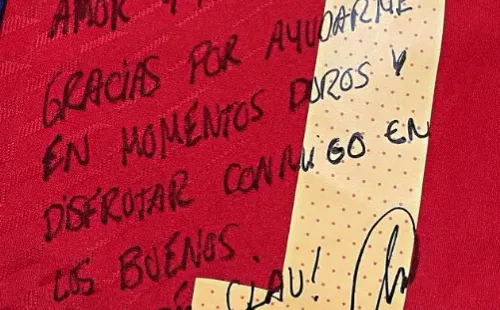 AMOR Y
GRACIAS POR AYUDARME
EN MOMENTOS DUROS Y
DISFRUTAR CONMIGO EN
LOS BUENOS.
CLAU!